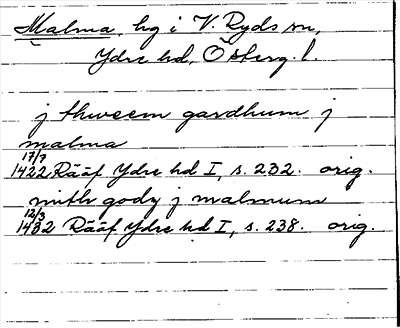 Malma, hg i V. Ryds sn,
Ydre hd, Österg. l.
j thweem gardhum j
malma
17/7
1422 Rääf Ydre hd I, s. 232. orig.
mith godz j malmum
12/3
1482 Rääf Ydre hd I, s. 238. orig.